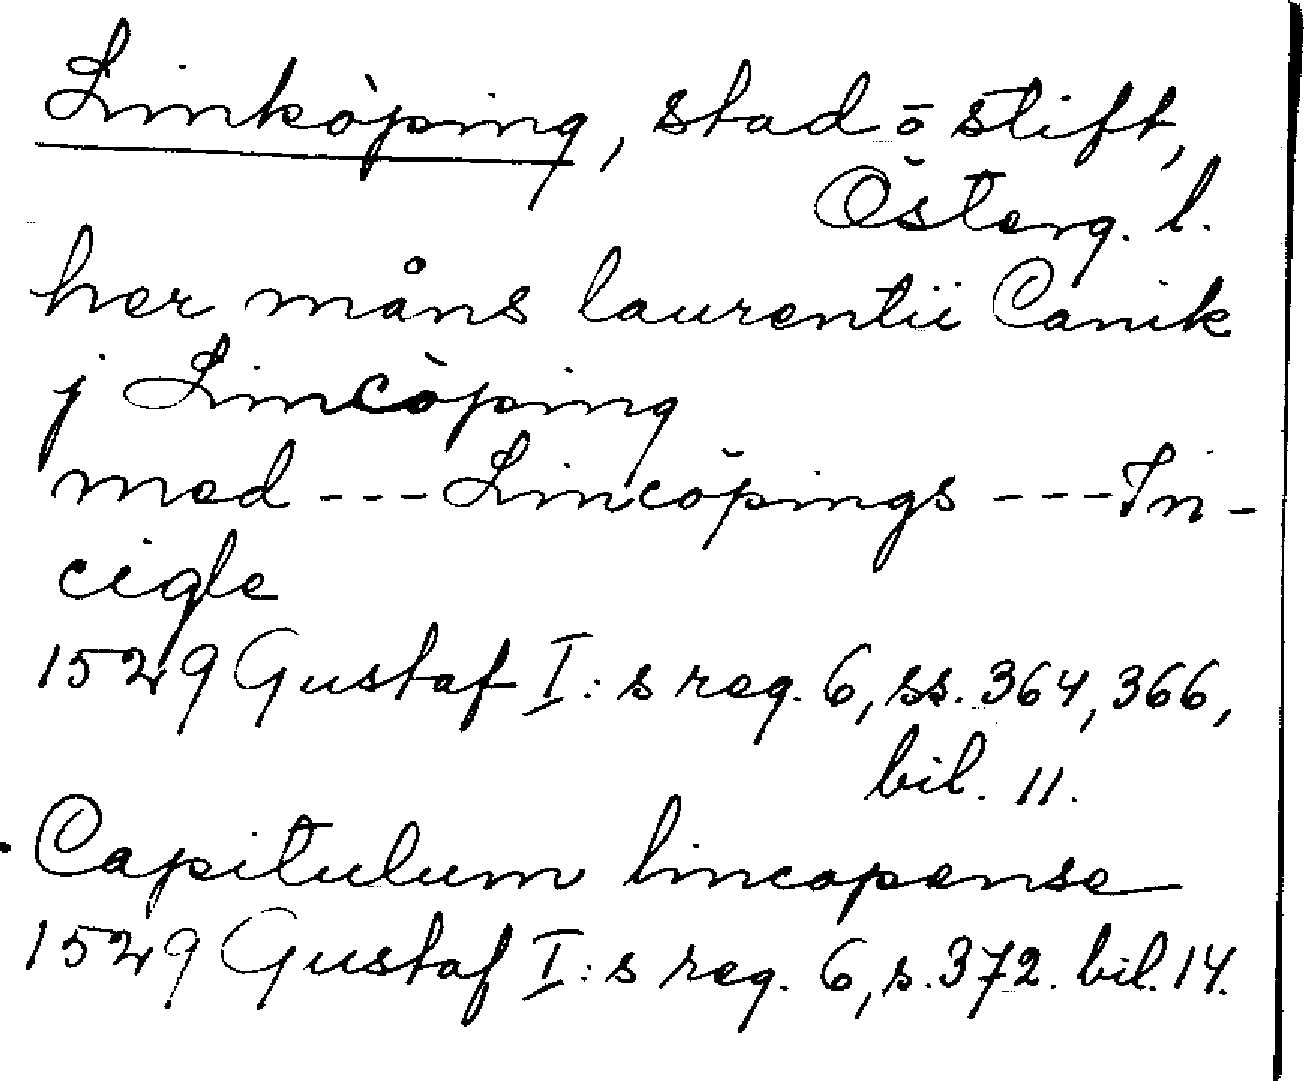 Linköping, stad o stift,
Österg. l.
her måns laurentii Canik
j Lincöping
med --- Lincöpings --- In-
cigle
1529 Gustaf I:s reg. 6, ss. 364, 366,
bil. 11.
Capitulum lincopense
1529 Gustaf I:s reg. 6, s. 372. bil. 14.